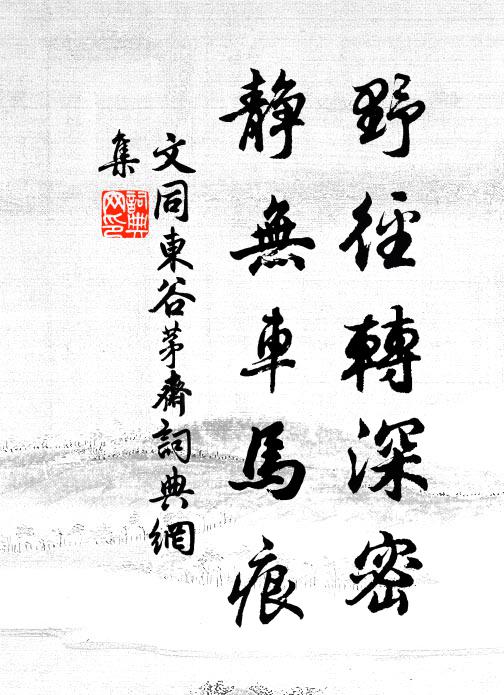 野徑轉深密
靜無車馬痕
文同東谷茅齋詞典網
集
詞典
网印